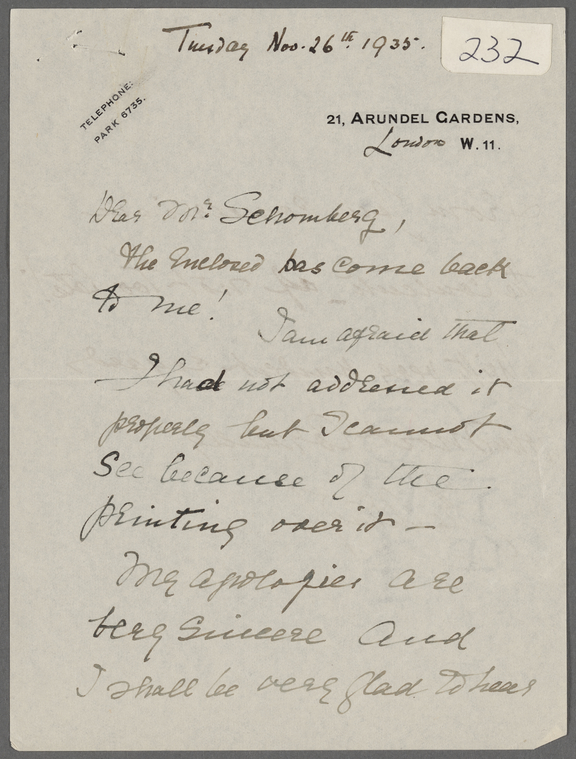 Tuesday Nov. 26th. 1935.
232
TELEPHONE:
PARK 6735.
21, ARUNDEL GARDENS,
London W.11.
Dear Mr. Schomberg,
The enclosed has come back
to me!
I am afraid that
I had not addressed it
properly but I cannot
see because of the
printing over it –
My apologies are
very sincere and
I shall be very glad to hear